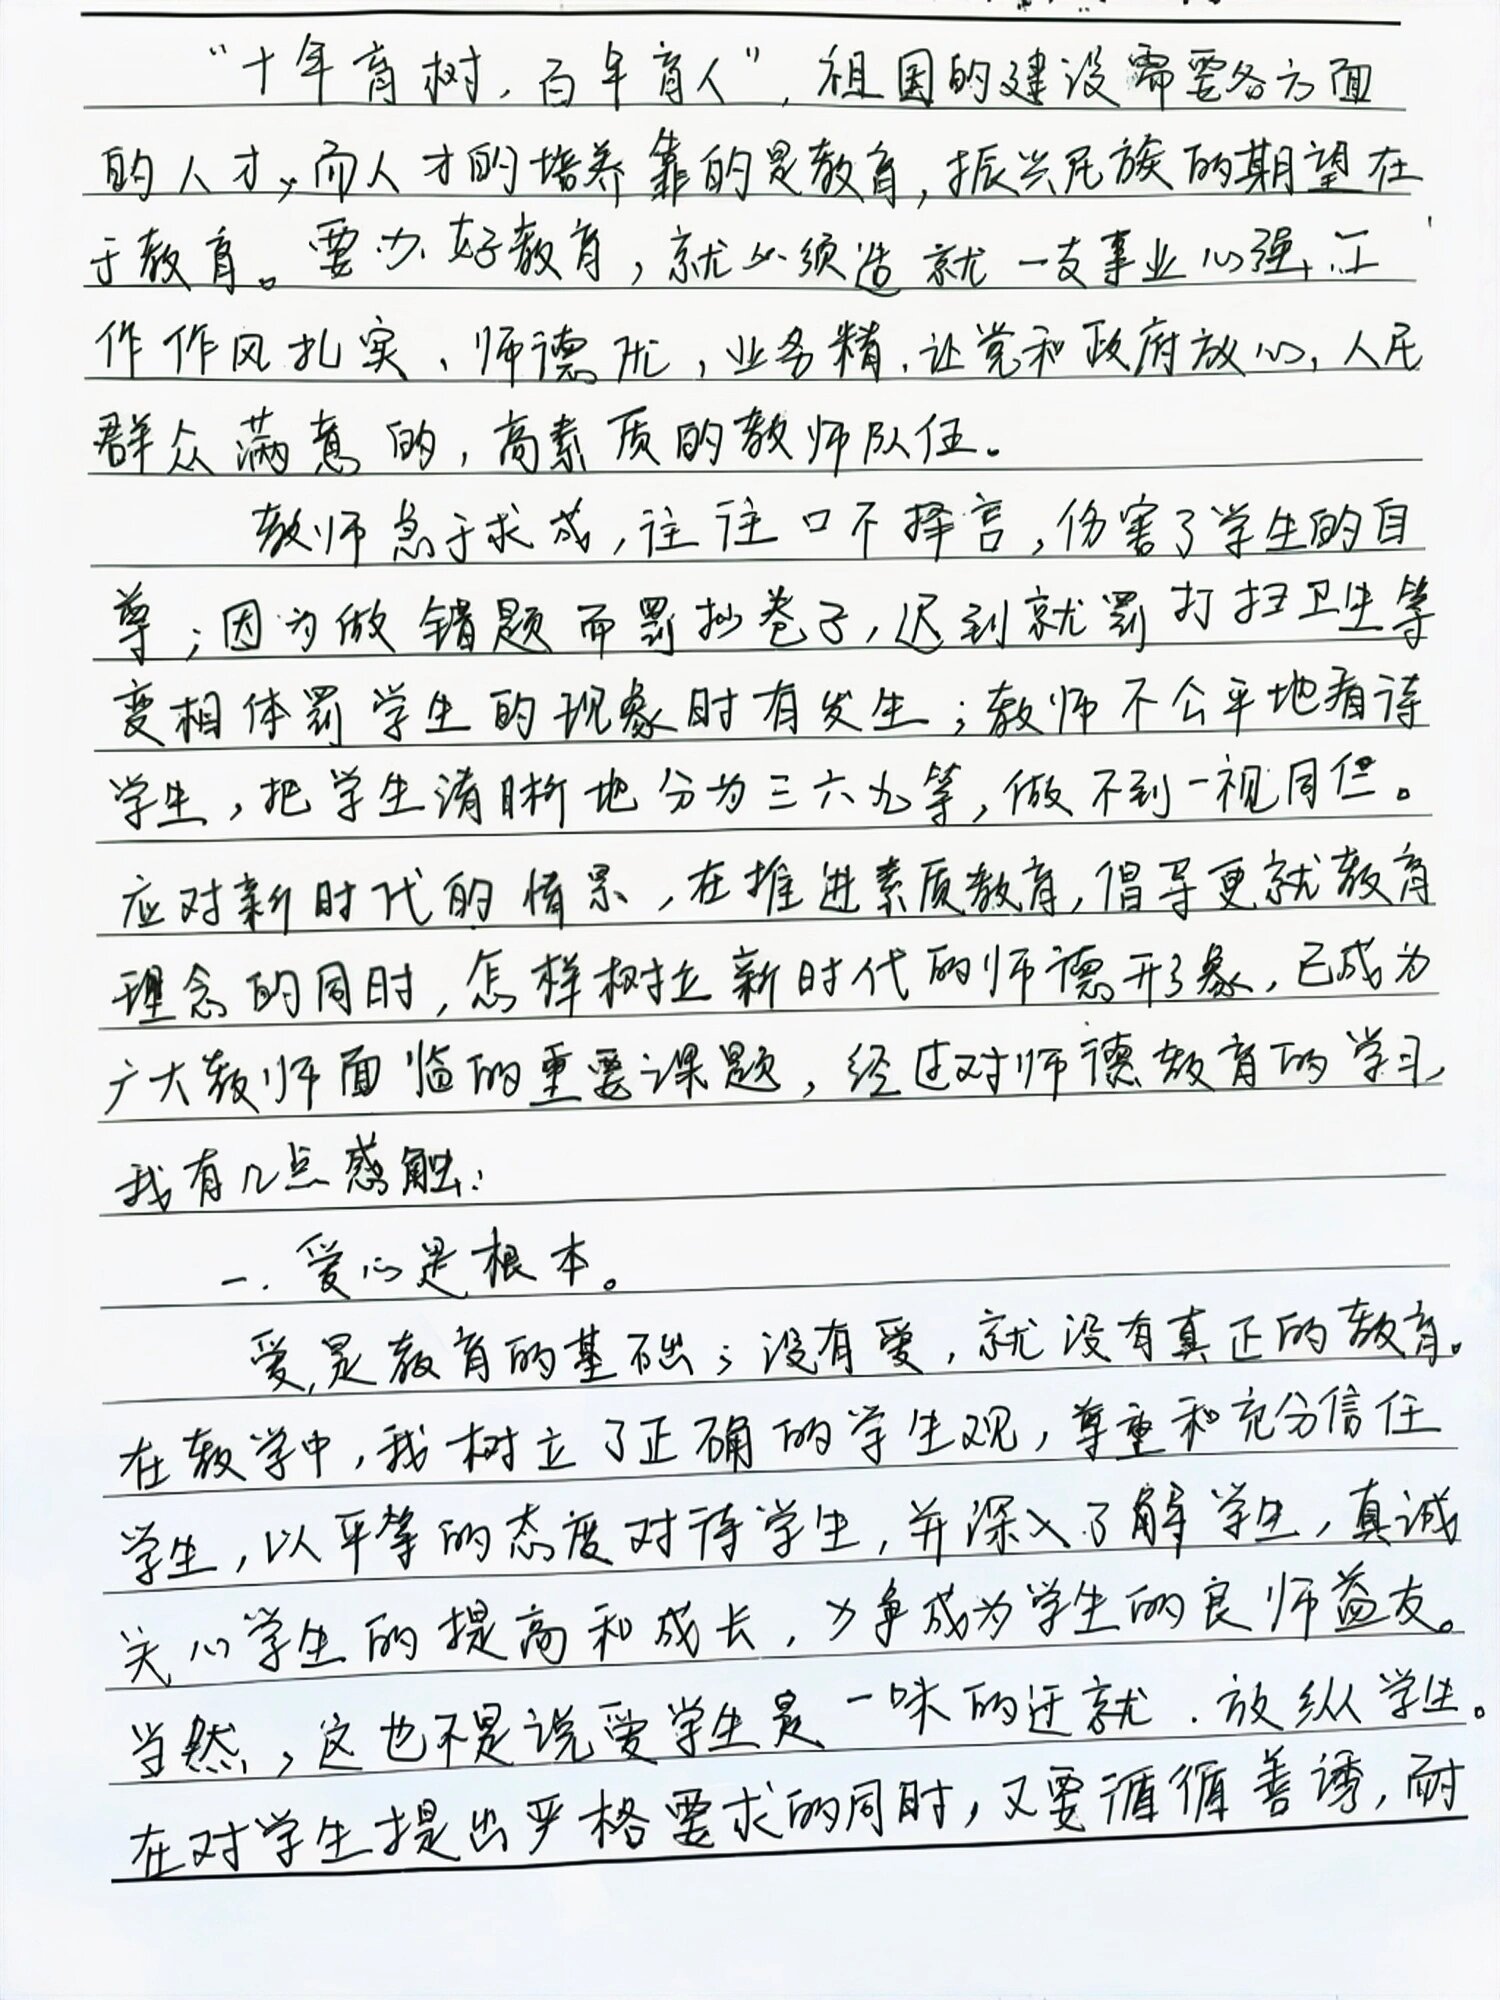 “十年育树，百年育人”，祖国的建设需要各方面
的人才，而人才的培养靠的是教育，振兴民族的期望在
于教育。要办好教育，就必须造就一支事业心强、工
作作风扎实、师德优，业务精，让党和政府放心，人民
群众满意的，高素质的教师队伍。
教师急于求成，往往口不择言，伤害了学生的自
尊；因为做错题而罚抄卷子，迟到就罚打扫卫生等
变相体罚学生的现象时有发生；教师不公平地看待
学生，把学生清晰地分为三六九等，做不到一视同仁。
应对新时代的情景，在推进素质教育，倡导更就教育
理念的同时，怎样树立新时代的师德形象，已成为
广大教师面临的重要课题，经过对师德教育的学习，
我有几点感触：
一．爱心是根本。
爱，是教育的基础；没有爱，就没有真正的教育。
在教学中，我树立了正确的学生观，尊重和充分信任
学生，以平等的态度对待学生，并深入了解学生，真诚
关心学生的提高和成长，力争成为学生的良师益友。
当然，这也不是说爱学生是一味的迁就．放纵学生。
在对学生提出严格要求的同时，又要循循善诱，耐